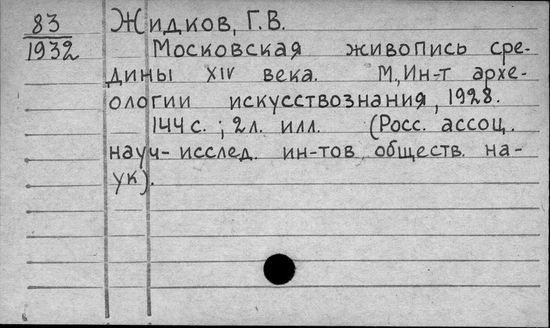 83
1932
Жидков, Г.В.
Московская живопись сре-
дины XIV века. М., Ин-т архе-
ологии искусствознания, 1928.
144 с.; 2 л. илл. (Росс. ассоц.
науч-исслед. ин-тов обществ. на-
ук).